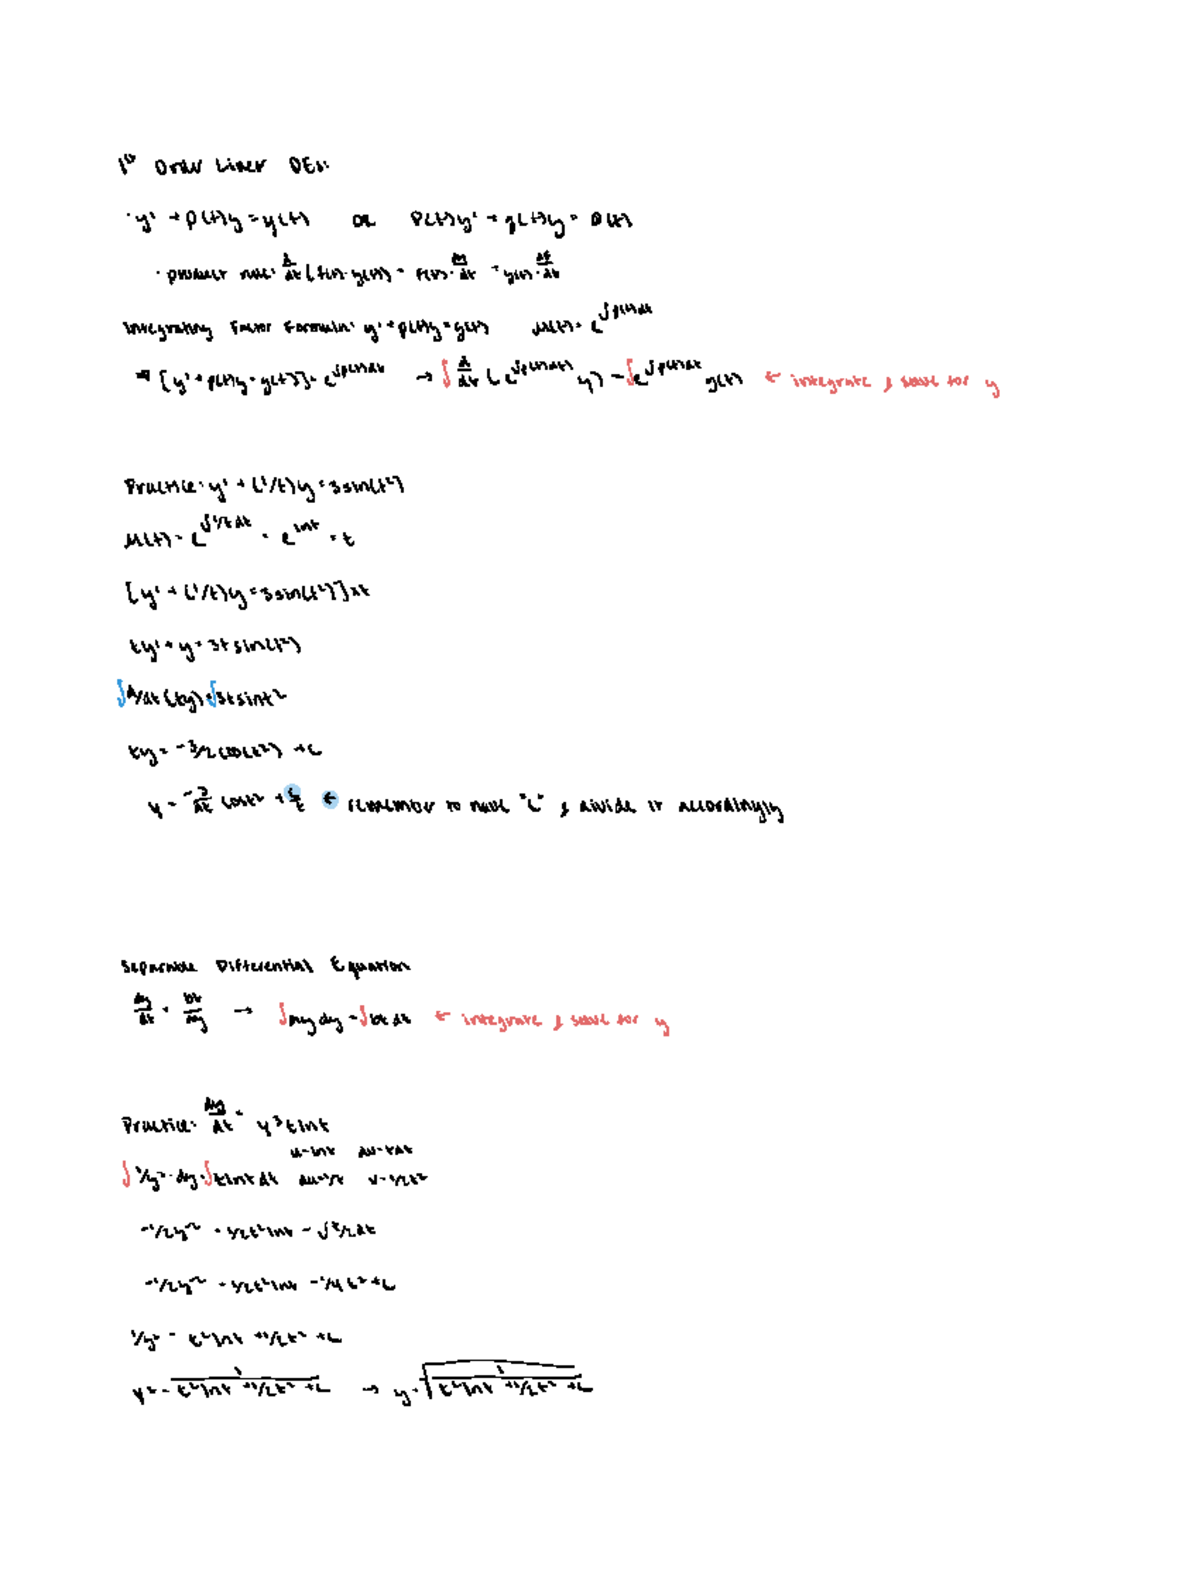 1st Order Linear DEs:
· y' + p(t)y = g(t) OR P(t)y' + g(t)y = G(t)
· product rule: d/dt (f(t)·g(t)) = f(t)· dg/dt + g(t)· df/dt
Integrating Factor Formula: y' + p(t)y = g(t) μ(t) = e^∫p(t)dt
→ [y' + p(t)y = g(t)] · e^∫p(t)dt → ∫ d/dt (e^∫p(t)dt y) = ∫e^∫p(t)dt g(t) ← integrate & solve for y
Practice: y' + (1/t)y = 3sin(t²)
μ(t) = e^∫1/t dt = e^lnt = t
[y' + (1/t)y = 3sin(t²)] x t
ty' + y = 3t sin(t²)
∫d/dt (ty) = ∫3tsint²
ty = -3/2 cos(t²) + C
y = -3/2t cost² + C/t ← remember to have "C" & divide it accordingly
Separable Differential Equation
dy/dt = bt/ay → ∫ay dy = ∫bt dt ← integrate & solve for y
Practice: dy/dt = y³ t lnt
u=lnt dv=tdt
∫ 1/y³ · dy = ∫tlnt dt du=1/t v=1/2t²
-1/2y⁻² = 1/2t²lnt - ∫t/2 dt
-1/2y⁻² = 1/2t²lnt - 1/4t² + C
1/y² = t²lnt + 1/2t² + C
y² = 1/(t²lnt + 1/2t² + C) → y = √(1/(t²lnt + 1/2t² + C))